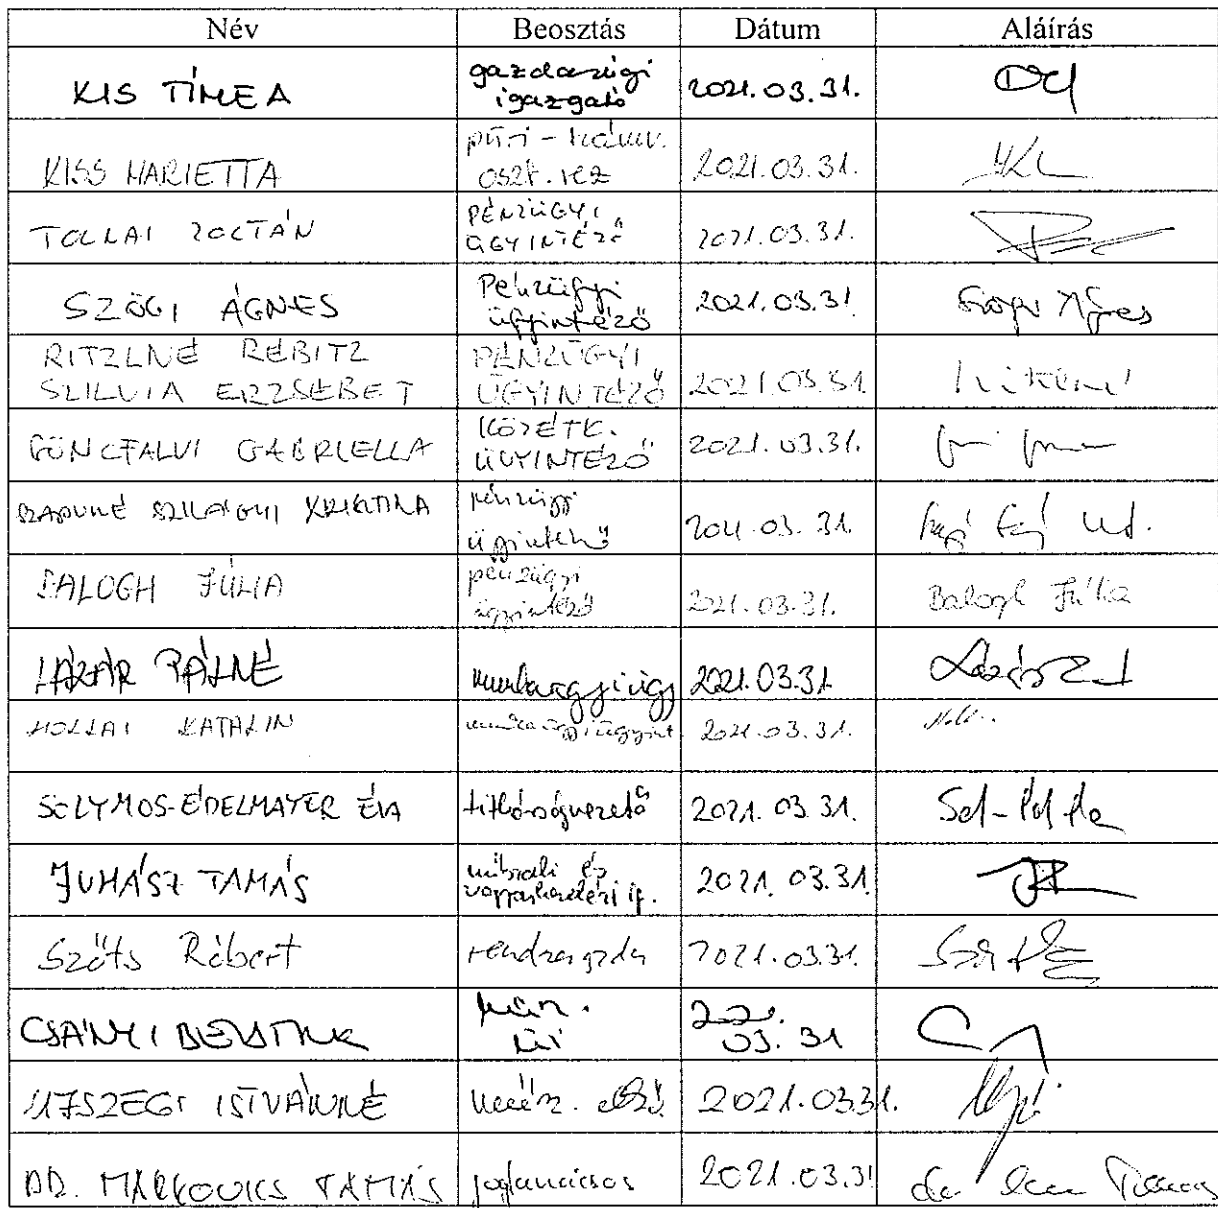 Név Beosztás Dátum Aláírás
KIS TÍMEA gazdasági igazgató 2021.03.31.
KISS MARIETTA oszt. vez 2021.03.31.
TOLLAI ZOLTÁN PÉNZÜGYI ÜGYINTÉZŐ 2021.03.31.
SZÖGI ÁGNES Pénzügyi ügyintéző 2021.03.31 Szögi Ágnes
RITZLNÉ REBITZ
SZILVIA ERZSÉBET PÉNZÜGYI ÜGYINTÉZŐ 2021.03.31
GÖNCFALVI GABRIELLA KÖZÉTK. ÜGYINTÉZŐ 2021.03.31.
SZILÁGYI KRISZTINA pénzügyi ügyintéző 2021.03.31.
BALOGH JÚLIA pénzügyi ügyintéző 2021.03.31. Balogh Júlia
LÁZÁR PÁLNÉ munkaügyi ügy 2021.03.31
MOLLAI KATALIN munkaügyi ügyint 2021.03.31.
SOLYMOS-EDELMAYER ÉVA titkárságvezető 2021.03.31.
JUHÁSZ TAMÁS műszaki és vagyonkezelési ig. 2021.03.31
Szőts Róbert rendszergazda 2021.03.31.
CSÁNYI 2021. 03.31
UJSZEGI ISTVÁNNÉ 2021.03.31.
DR. MARKOVICS TAMÁS jogtanácsos 2021.03.31